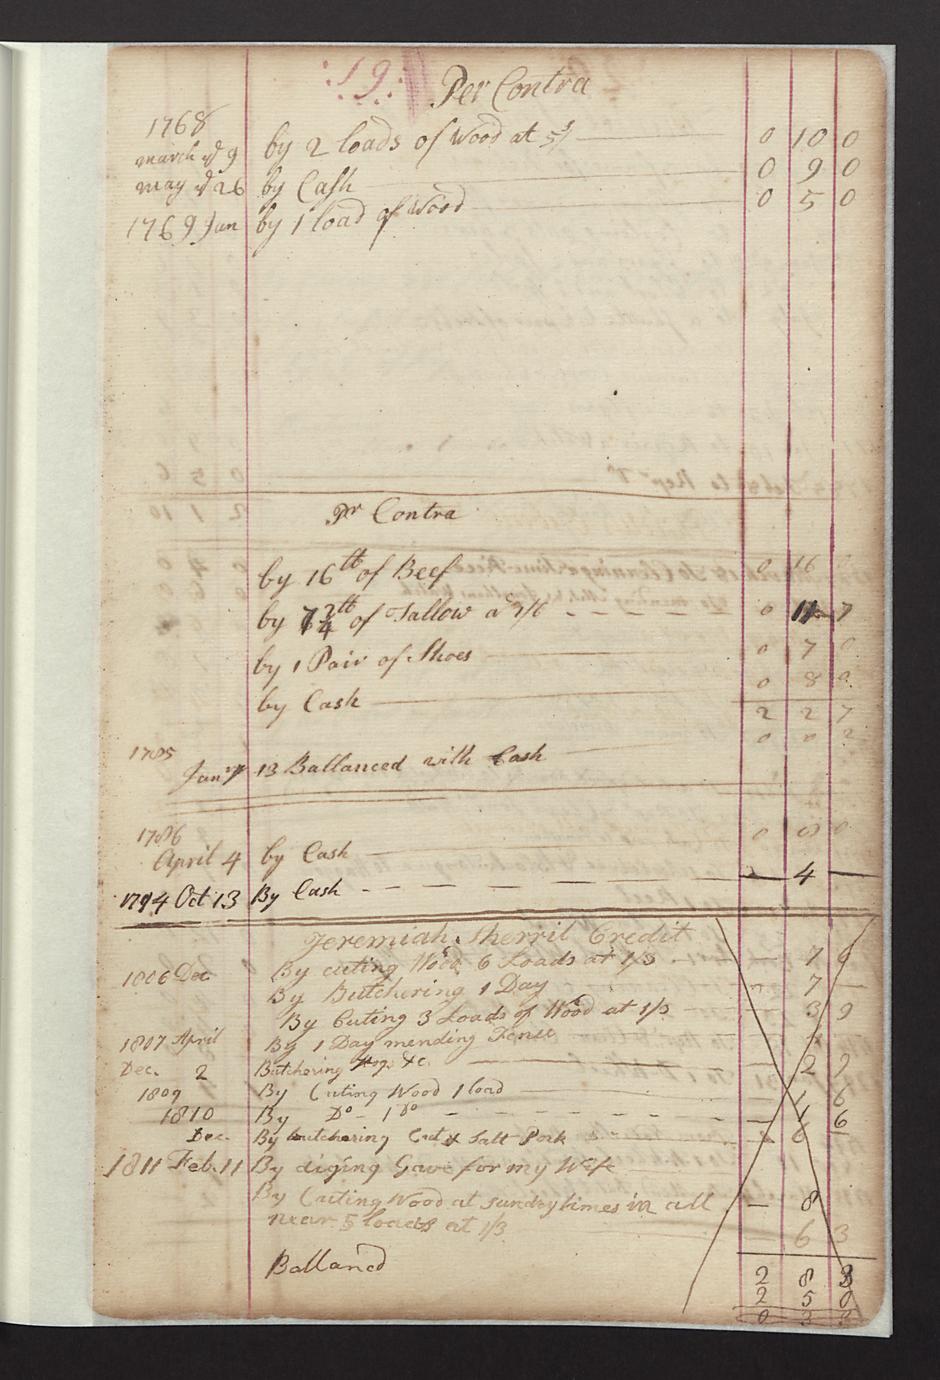 :19:
Per Contra
1768
march ye 9 by 2 loads of wood at 5/ 0 10 0
may ye 26 by Cash 0 9 0
1769 Jan by 1 load of Wood 0 5 0
Pr Contra
by 16 lb of Beef 0 16
by 7 3/4 lb of Tallow a 0 11 7
by 1 Pair of Shoes 0 7 0
by Cash 0 8 0
2 2 7
1785 0 0 2
Jany 13 Ballanced with Cash
1786
April 4 by Cash 0 8 0
1794 Oct 13 By Cash - 4 -
Jeremiah Sherril Credit
1806 Dec By cuting Wood 6 Loads at 1/3 - 7 6
By Butchering 1 Day - 7 -
By Cuting 3 Loads of Wood at 1/3 3 9
1807 April By 1 Day mending Fence
Dec. 2 Butchering Hogs &c.
1809 By Cuting Wood 1 load 1 6
1810 By Do 1 Do - 1 6
Dec. By butchering Cut & Salt Pork - 6 -
1811 Feb. 11 By diging Gave for my Wife
By Cuting Wood at sundry times in all - 8
near 5 loads at 1/3 6 3
Balland
2 8 3
2 5 0
0 3 3